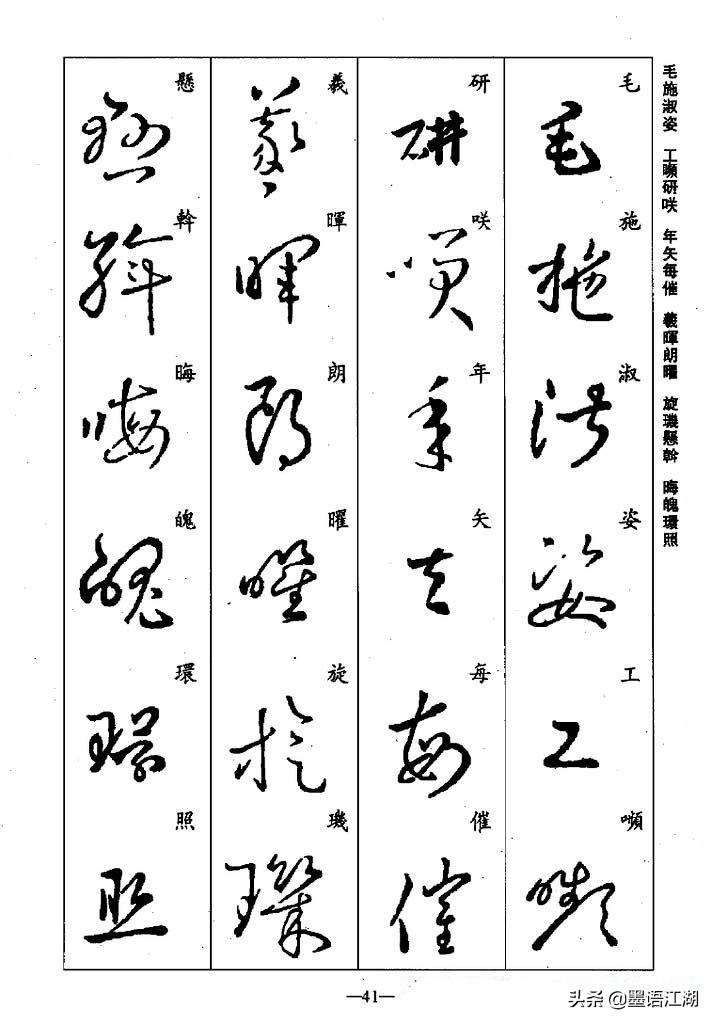 毛施淑姿 工嚬研咲 年矢每催 羲暉朗曜 旋璣懸斡 晦魄環照
毛施淑姿工嚬
研咲年矢每催
義暉朗曜旋璣
懸斡晦魄環照
—41—
头条 @墨语江湖